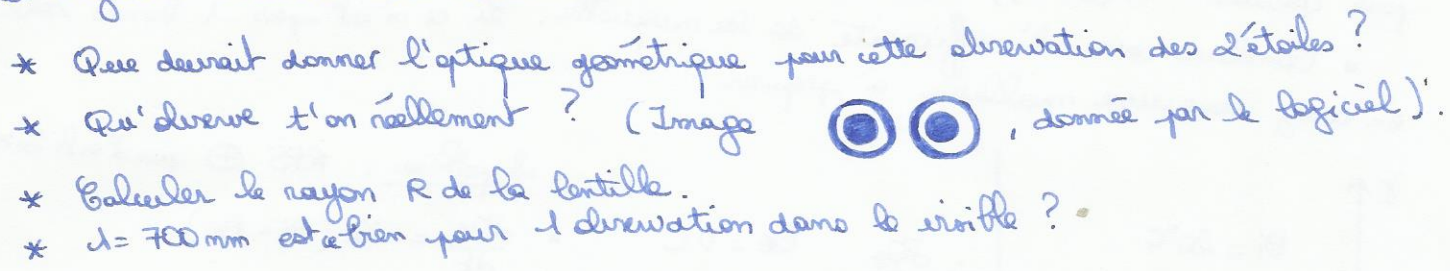 * Que devrait donner l'optique géométrique pour cette observation des 2 étoiles ?
* Qu'observe t'on réellement ? (Image , donnée par le logiciel).
* Calculer le rayon R de la lentille.
* λ = 700 nm est ce bien pour 1 observation dans le visible ?